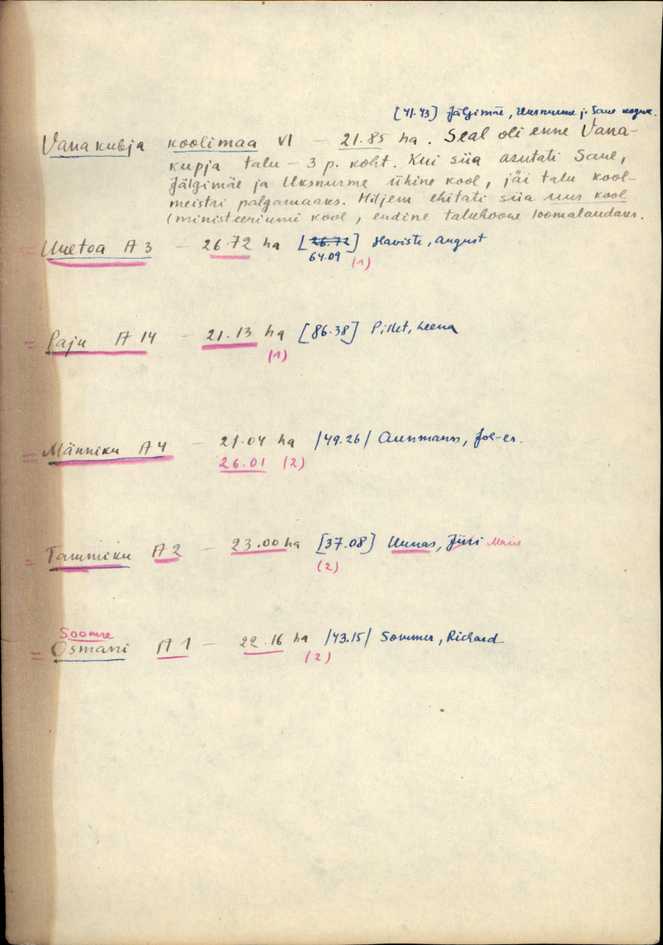 [41.43] Jälgimäe, Uksnurme j. Saue
Vanakubja koolimaa VI - 21.85 ha. Seal oli enne Vana-
kupja talu - 3 p. koht. Kui siia asutati Saue,
Jälgimäe ja Uksnurme ühine kool, jäi talu kool-
meistri palgamaaks. Hiljem ehitati siia uus kool
(ministeeriumi kool, endine taluhoone loomalaudaks.
= Uuetoa A 3 - 26.72 ha [26.72] Haviste, August
64.09 (1)
= Paju A 14 - 21.13 ha [86.38] Leena
(1)
= Männiku A 4 - 21.04 ha /49.26/
26.01 (2)
= Tammiku A 2 - 23.00 ha [37.08] Uunas, Jüri
(2)
Soomre
= Osmani A 1 - 22.16 ha /43.15/ Sommer, Richard
(2)